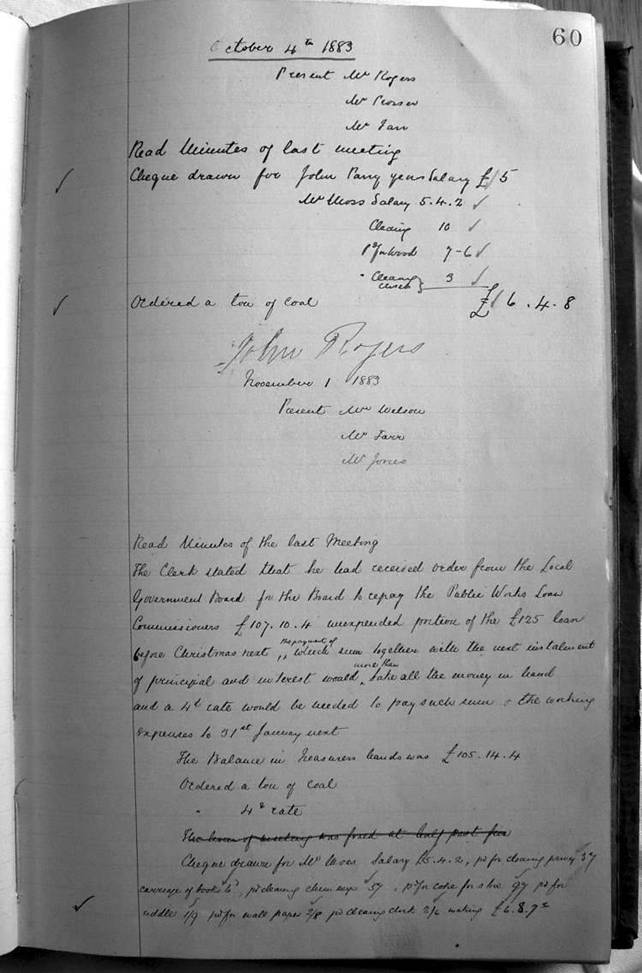 60
October 4th 1883
Present Mr Rogers
Mr Prosser
Mr Farr
Read Minutes of last meeting
Cheque drawn for John Parry years Salary £15
Mr Moss Salary 5.4.2
Cleaning 10
Pd for Wood 7-6
" Cleaning 3
£6.4.8
Ordered a ton of coal
John Rogers
November 1 1883
Present Mr Wilson
Mr Farr
Mr Jones
Read Minutes of the last Meeting
The Clerk stated that he had received order from the Local
Government Board for the Board to repay the Public Works Loan
Commissioners £107.10.4 unexpended portion of the £125 loan
before Christmas next, the payment of which sum together with the next instalment
of principal and interest would more than take all the money in hand
and a 4d rate would be needed to pay such sum & the working
expenses to 31st January next
The Balance in Treasurers hands was £105.14.4
Ordered a ton of coal
" 4d rate
The hour of meeting was fixed at half past five
Cheque drawn for Mr Moss Salary £5.4.2, pd for cleaning privy 3/
carriage of books, pd cleaning chimneys 5/, pd for coke for stove 9/ pd for
riddle 1/9 pd for wall paper 2/8 pd cleaning clock 2/6 making £6.8.7